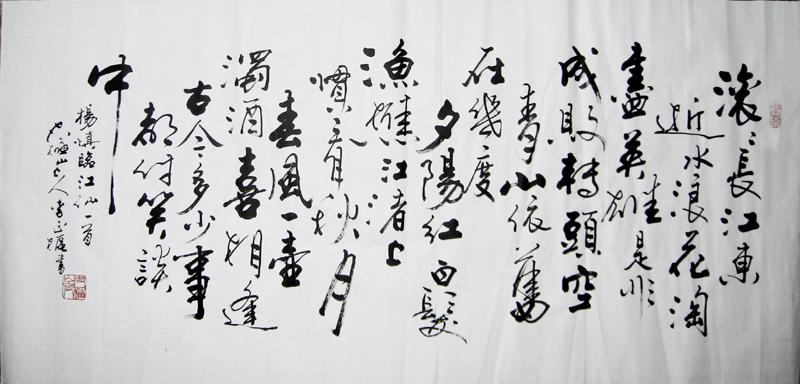 滚〻長江東
逝水浪花淘
盡英雄是非
成敗轉頭空
青山依舊
在幾度
夕陽紅白髮
漁樵江渚上
慣看秋月
春風一壺
濁酒喜相逢
古今多少事
都付笑談
中
楊慎臨江仙一首
山人書